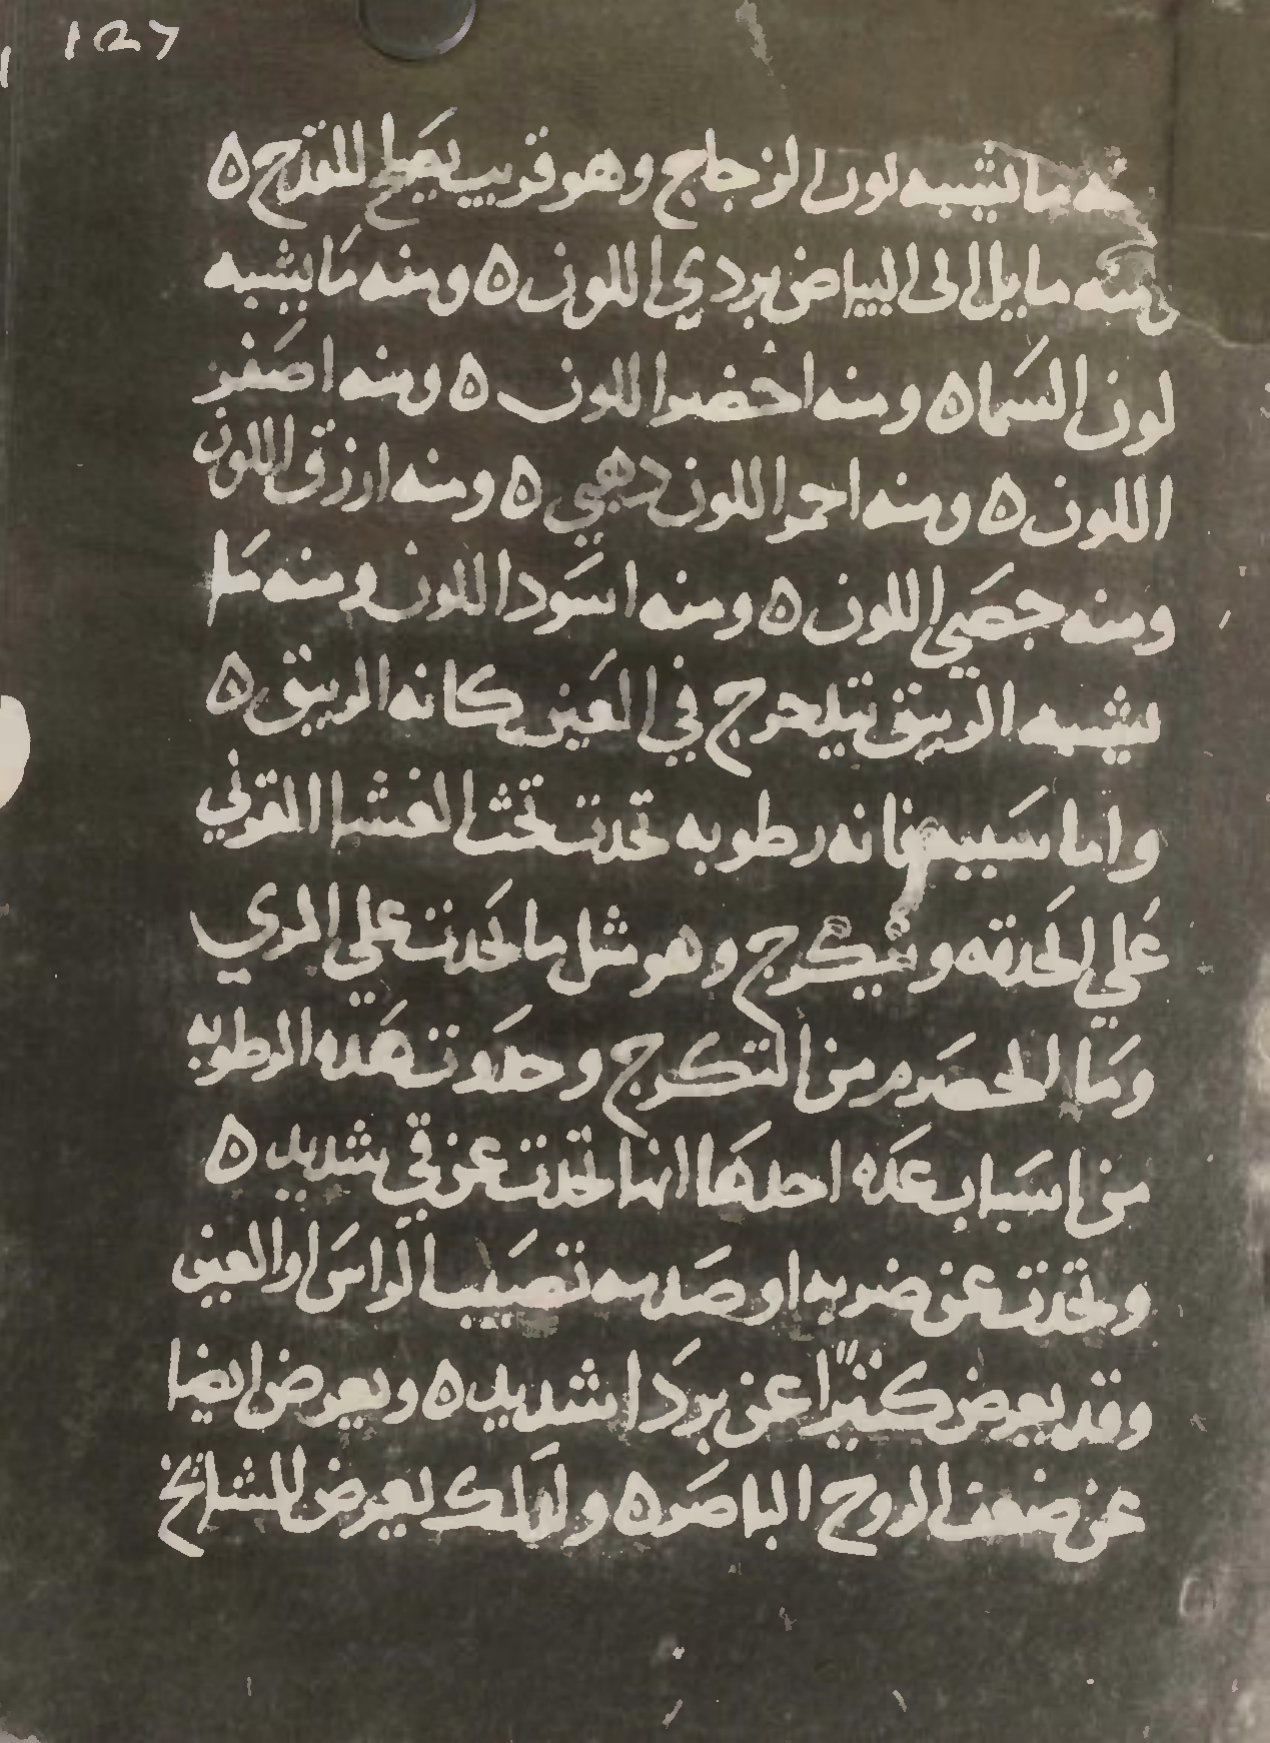 ١٥٧
منه ما يشبه لون الزجاج وهو قريب يصلح للقدح ه
ومنه مايل الى البياض بردي اللون ه ومنه ما يشبه
لون السما ه ومنه اخضر اللون ه ومنه اصفر
اللون ه ومنه احمر اللون دهبي ه ومنه ازرق اللون
ومنه جصي اللون ه ومنه اسود اللون ومنه ما
يشبه الزيبق يتدحرج في العين كانه الزيبق ه
واما سببه فانه رطوبه تحدث تحت الغشا القرني
علي الحدقه وتتكرج وهو مثل ما يحدث علي المري
وما الحصرم من التكرج وحدوث هده الرطوبه
من اسباب عده احدها انها تحدث عن قي شديد ه
وتحدث عن ضربه او صدمه تصيب الراس او العين
وقد يعرض كثيرا عن برد شديد ه ويعرض ايضا
عن ضعف الروح الباصره ولدلك يعرض للمشايخ